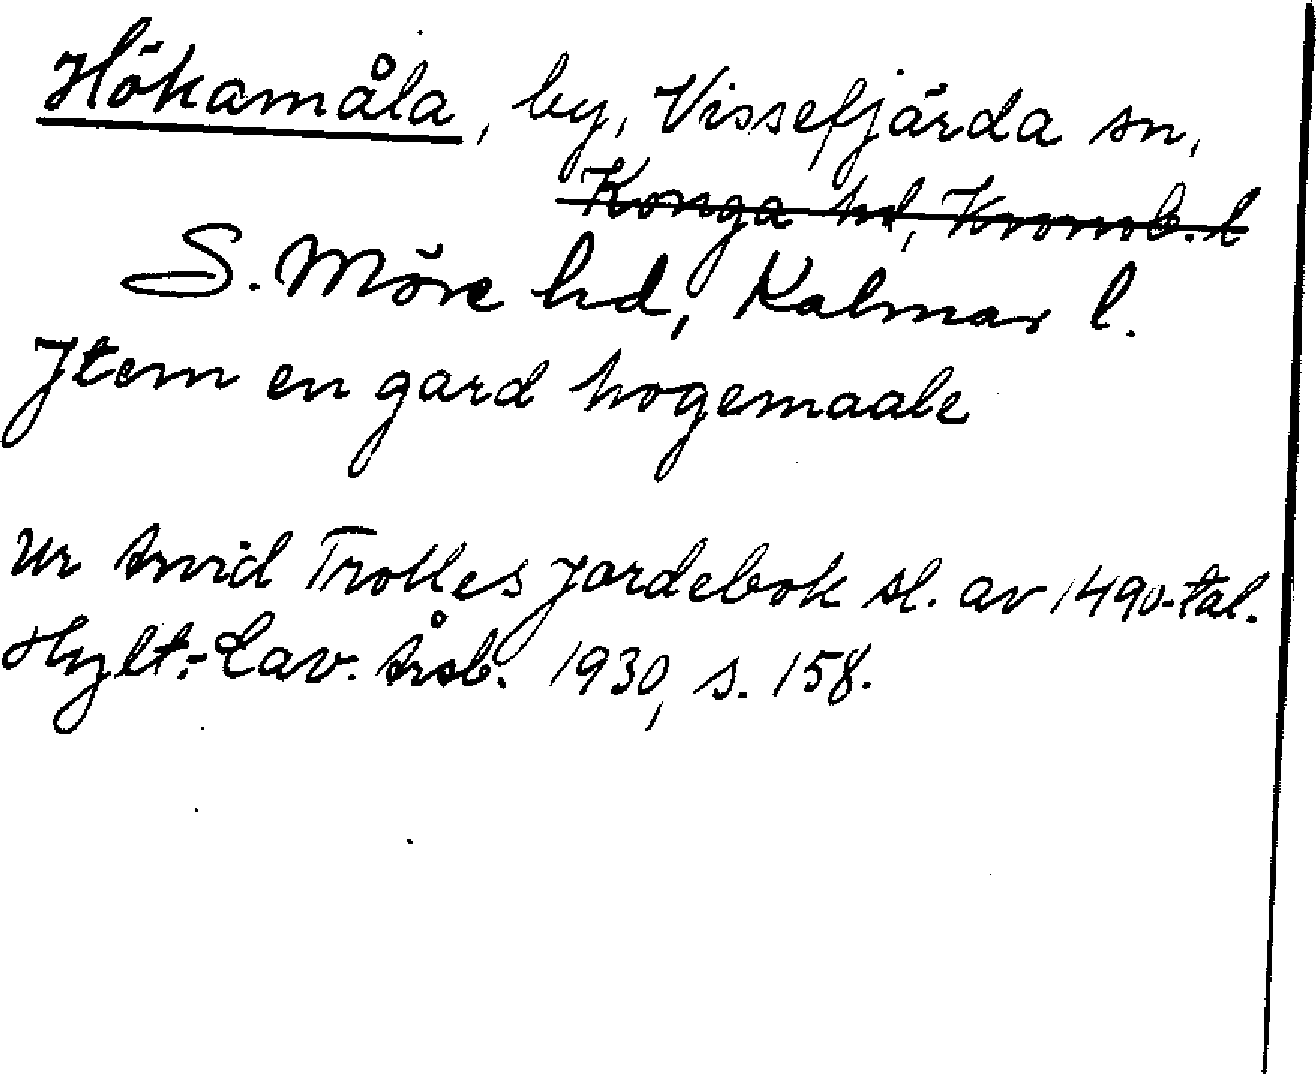 Hökamåla, by, Vissefjärda sn,
Konga hd, Kronob. l
S. Möre hd, Kalmar l.
Jtem en gard hogemaale
Ur Arvid Trolles jordebok sl. av 1490-tal.
Hylt.-Cav. Årsb. 1930, s. 158.